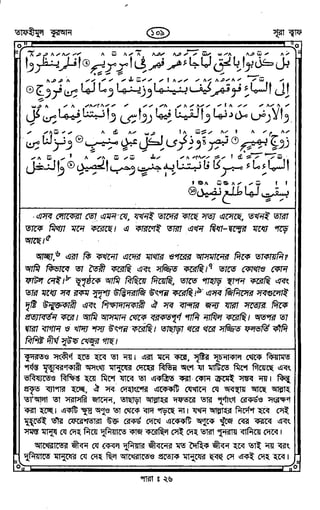 তাফহীমুল কুরআন
১০৯
সূরা ক্বাফ
بَلْ كَذَّبُوا بِالْحَقِّ لَمَّا جَاءَهُمْ فَهُمْ فِي أَمْرٍ مَرِيجٍ ۝ أَفَلَمْ يَنْظُرُوا
إِلَى السَّمَاءِ فَوْقَهُمْ كَيْفَ بَنَيْنَاهَا وَزَيَّنَّاهَا وَمَا لَهَا مِنْ فُرُوجٍ ۝
وَالْأَرْضَ مَدَدْنَاهَا وَأَلْقَيْنَا فِيهَا رَوَاسِيَ وَأَنْبَتْنَا فِيهَا مِنْ كُلِّ
زَوْجٍ بَهِيجٍ ۝ تَبْصِرَةً وَذِكْرَى لِكُلِّ عَبْدٍ مُنِيبٍ ۝ وَنَزَّلْنَا مِنَ
السَّمَاءِ مَاءً مُبَارَكًا فَأَنْبَتْنَا بِهِ جَنَّاتٍ وَحَبَّ الْحَصِيدِ ۝ وَالنَّخْلَ
بَاسِقَاتٍ لَهَا طَلْعٌ نَضِيدٌ ۝
এসব লোকেরা তো এমন যে, যখনই তাদের কাছে সত্য এসেছে, তখনই তারা
তাকে মিথ্যা মনে করেছে। এ কারণেই তারা এখন দ্বিধা-দ্বন্দ্বের মধ্যে পড়ে
আছে।
আচ্ছা, এরা কি কখনো এদের মাথার ওপরের আসমানের দিকে তাকায়নি?
আমি কিভাবে তা তৈরী করেছি এবং সজ্জিত করেছি। তাতে কোথাও কোন
ফাটল নেই। ভূপৃষ্ঠকে আমি বিছিয়ে দিয়েছি, তাতে পাহাড় স্থাপন করেছি এবং
তার মধ্যে সব রকম সুদৃশ্য উদ্ভিদরাজি উৎপন্ন করেছি। এসব জিনিসের সবগুলোই
দৃষ্টি উন্মুক্তকারী এবং শিক্ষাদানকারী ঐ সব বান্দার জন্য যারা সত্যের দিকে
প্রত্যাবর্তন করে। আমি আসমান থেকে বরকতপূর্ণ পানি নাযিল করেছি। অতপর তা
দ্বারা বাগান ও খাদ্য শস্য উৎপন্ন করেছি। তাছাড়া থরে থরে সজ্জিত ফলভর্তি কাঁদি
বিশিষ্ট দীর্ঘ সুউচ্চ খেজুর গাছ।
কুদরতও সংকীর্ণ হতে হবে তা নয়। এরা মনে করে, সৃষ্টির সূচনাকাল থেকে কিয়ামত
পর্যন্ত মৃত্যুবরণকারী অসংখ্য মানুষের দেহের বিভিন্ন অংশ যা মাটিতে মিশে গিয়েছে এবং
ভবিষ্যতেও বিক্ষিপ্ত হয়ে মিশে যাবে তা একত্রিত করা কোন ক্রমেই সম্ভব নয়। কিন্তু
প্রকৃত ব্যাপার হচ্ছে, ঐ সব দেহাংশের একেকটি যেখানে যে অবস্থায় আছে আল্লাহ
তা'আলা তা সরাসরি জানেন, তাছাড়া আল্লাহর দফতরে তার পূর্ণাংগ রেকর্ডও সংরক্ষণ
করা হচ্ছে। একটি ক্ষুদ্র অণুও তা থেকে বাদ পড়ছে না। যখন আল্লাহর নির্দেশ হবে সেই
মুহূর্তেই তাঁর ফেরেশতারা উক্ত রেকর্ড দেখে একেকটি অণুকে খুঁজে বের করবে এবং
সমস্ত মানুষ যে দেহ নিয়ে দুনিয়াতে কাজ করেছিল সেই দেহ তারা পুনরায় বানিয়ে দেবে।
আখেরাতের জীবন যে কেবল দুনিয়ার জীবনের মত দৈহিক জীবন হবে তাই নয় বরং
দুনিয়াতে মানুষের যে দেহ ছিল আখেরাতেও প্রত্যেক মানুষের হুবহু সে একই দেহ হবে।
পারা : ২৬